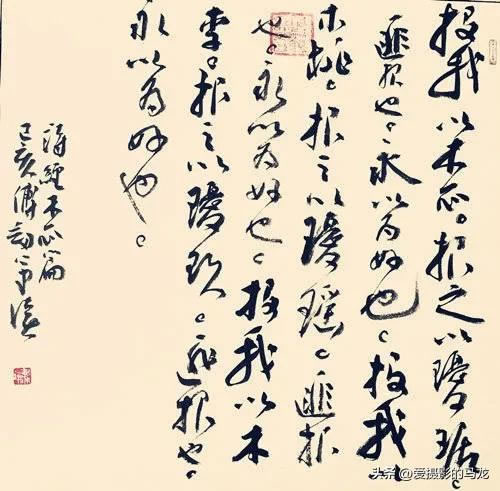 投我以木瓜。报之以瓊琚。
匪报也。永以为好也。投我
木桃。报之以瓊瑶。匪报
也。永以为好也。投我以木
李。报之以瓊玖。匪报也。
永以为好也。
诗经木瓜篇
己亥傅
头条 @爱摄影的马龙